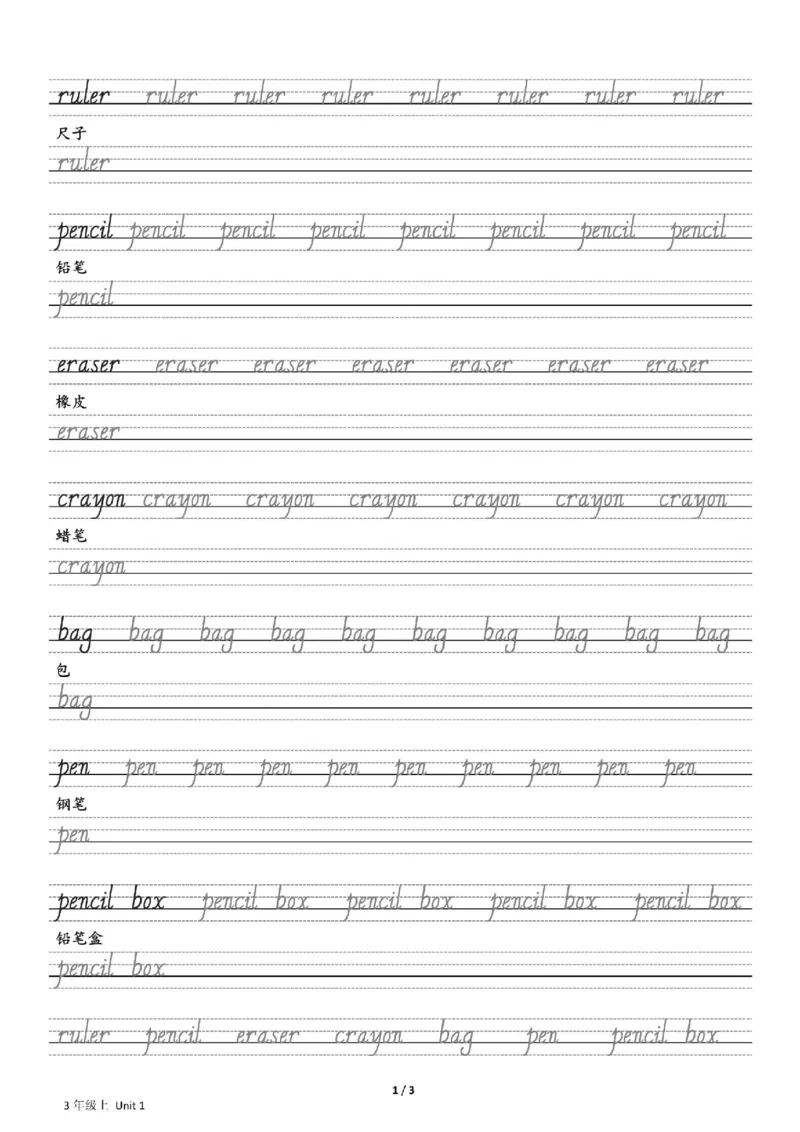 ruler ruler ruler ruler ruler ruler ruler ruler
尺子
ruler
pencil pencil pencil pencil pencil pencil pencil pencil
铅笔
pencil
eraser eraser eraser eraser eraser eraser eraser
橡皮
eraser
crayon crayon crayon crayon crayon crayon crayon
蜡笔
crayon
bag bag bag bag bag bag bag bag bag bag
包
bag
pen pen pen pen pen pen pen pen pen pen
钢笔
pen
pencil box pencil box pencil box pencil box pencil box
铅笔盒
pencil box
ruler pencil eraser crayon bag pen pencil box
1 / 3
3 年级上 Unit 1